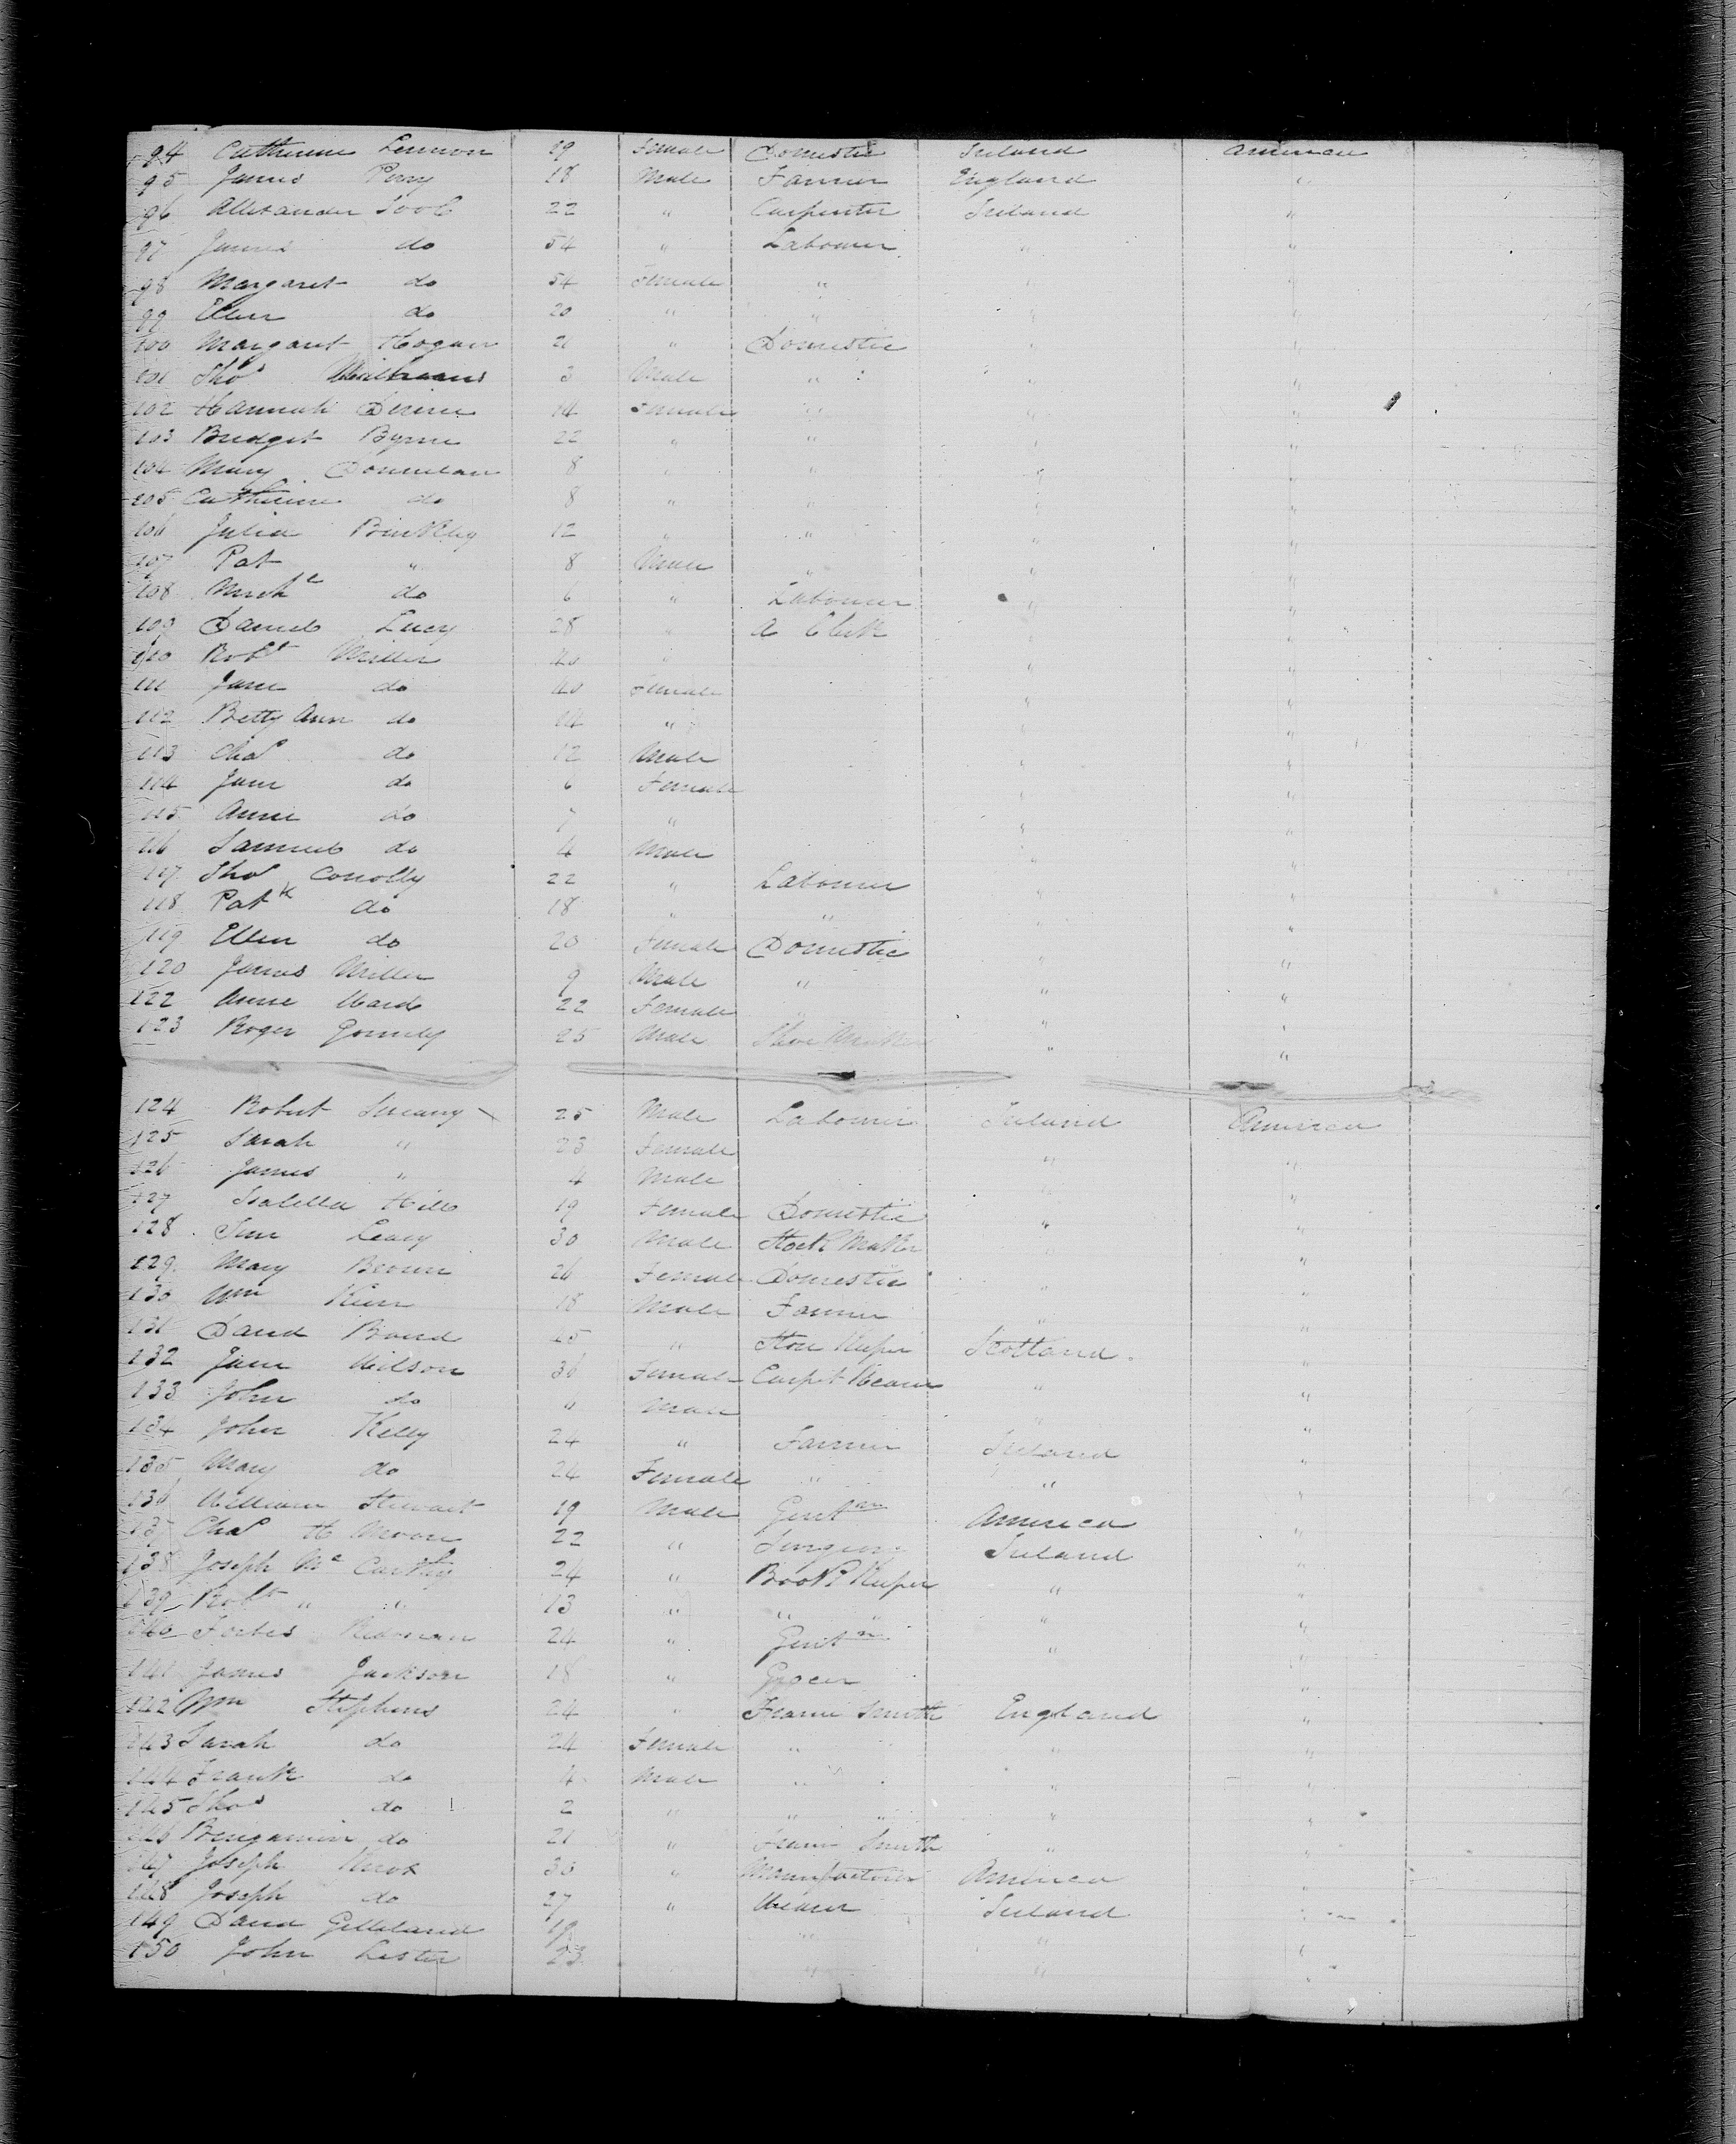 94 Catherine Lennon 19 Female Domestic Ireland America
95 James Perry 18 Male Farmer England "
96 Allexander 22 " Carpenter Ireland "
97 James do 54 " Labourer " "
98 Margaret do 54 Female " " "
99 Ellen do 20 " " " "
100 Margaret Hogan 21 " Domestic " "
101 Thos 3 Male " " "
102 Hannah 14 Female " " "
103 Bridget Byrne 22 " " " "
104 Mary Donnelan 8 " " " "
105 Catherine do 8 " " " "
106 Julia 12 " " " "
107 Pat " 8 Male " " "
108 Michl do 6 " Labourer " "
109 Daniel Lucy 28 " A Clerk " "
110 Robt Miller 40 " " "
111 Jane do 40 Female " "
112 Betty Ann do 14 " " "
113 Chas do 12 Male " "
114 Jane do 6 Female " "
115 Anne do 7 " " "
116 Samuel do 4 Male " "
117 Thos Conolly 22 " Labourer " "
118 Patk do 18 " " " "
119 Ellen do 20 Female Domestic " "
120 James Miller 9 Male " " "
122 Anne Ward 22 Female " " "
123 Roger Gormely 25 Male Shoe Maker " "
124 Robert 25 Male Labourer Ireland America
125 Sarah " 23 Female " "
126 James " 4 Male " "
127 Isabella Hill 19 Female Domestic " "
128 Leary 30 Male Stock Maker " "
129 Mary Brown 26 Female Domestic " "
130 Wm Kerr 18 Male Farmer " "
131 David Bond 45 " Store Keeper Scotland "
132 Jane Wilson 36 Female Carpet Weaver " "
133 John do " Male " "
134 John Kelly 24 " Farmer Ireland "
135 Mary do 24 Female " " "
136 William Stewart 19 Male Gentm America "
137 Chas H Moore 22 " Surgeon Ireland "
138 Joseph Mc Carthy 24 " Book Keeper " "
139 Robt " " 13 " " " " "
140 Forbes 24 " Gentn " "
141 James Jackson 18 " Grocer "
142 Wm Stephens 24 " Frame Smith England "
143 Sarah do 24 Female " " "
144 Frank do 4 Male " " "
145 Thos do 2 " " " " "
146 Bengamin do 21 " Frame Smith " "
147 Joseph Knox 30 " Manufacturer America "
148 Joseph do 27 " Weaver Ireland "
149 David Gilleland 19 " " "
150 John Lester 23 " " "